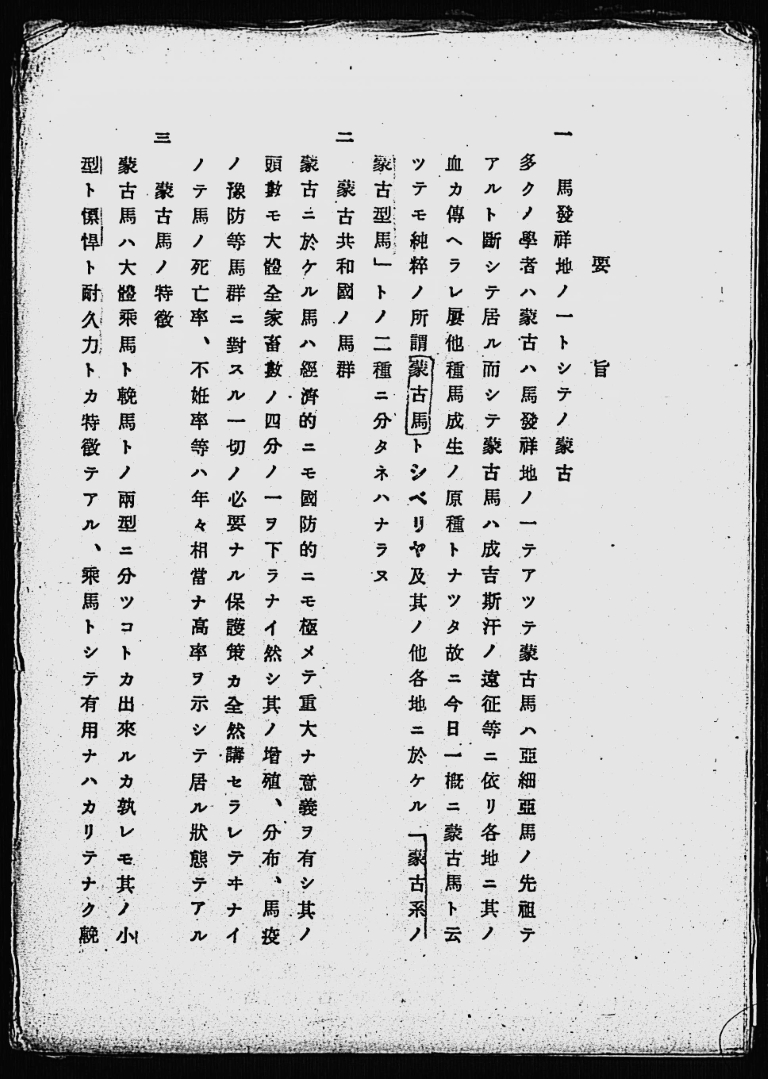 要旨
一　馬發祥地ノ一トシテノ蒙古
多クノ學者ハ蒙古ハ馬發祥地ノ一テアツテ蒙古馬ハ亞細亞馬ノ先祖テ
アルト斷シテ居ル而シテ蒙古馬ハ成吉斯汗ノ遠征等ニ依リ各地ニ其ノ
血カ傳ヘラレ屢他種馬成生ノ原種トナツタ故ニ今日一概ニ蒙古馬ト云
ツテモ純粹ノ所謂蒙古馬トシベリヤ及其ノ他各地ニ於ケル「蒙古系ノ
蒙古型馬」トノ二種ニ分タネハナラヌ
二　蒙古共和國ノ馬群
蒙古ニ於ケル馬ハ經濟的ニモ國防的ニモ極メテ重大ナ意義ヲ有シ其ノ
頭數モ大體全家畜數ノ四分ノ一ヲ下ラナイ然シ其ノ增殖、分布、馬疫
ノ豫防等馬群ニ對スル一切ノ必要ナル保護策カ全然講セラレテヰナイ
ノテ馬ノ死亡率、不妊率等ハ年々相當ナ高率ヲ示シテ居ル狀態テアル
三　蒙古馬ノ特徵
蒙古馬ハ大體乘馬ト輓馬トノ兩型ニ分ツコトカ出來ルカ孰レモ其ノ小
型ト慓悍ト耐久力トカ特徵テアル、乘馬トシテ有用ナハカリテナク輓